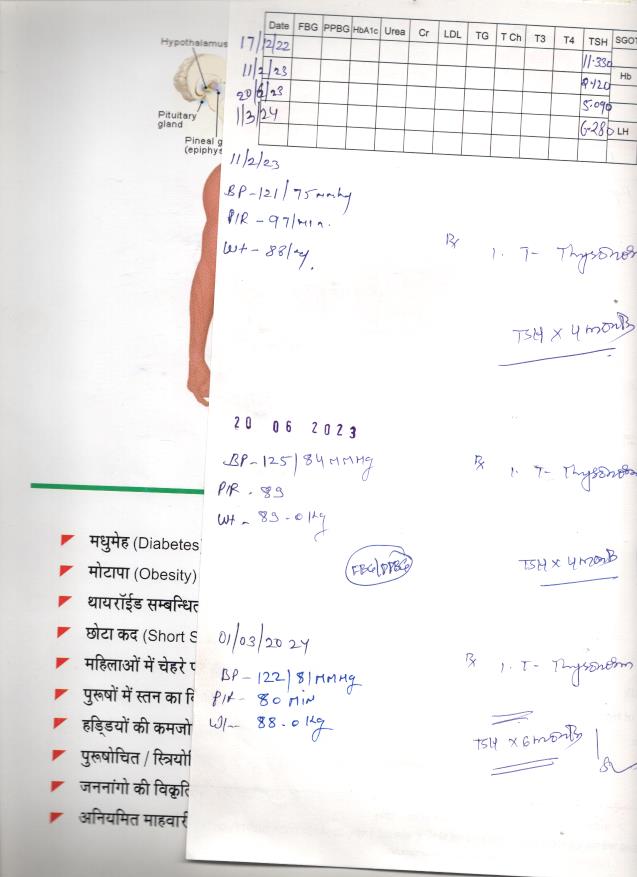 Hypothalamus
Pituitary
gland
Pineal g
(epiphys
Date FBG PPBG HbA1c Urea Cr LDL TG T Ch T3 T4 TSH SGOT
17/12/22 11.330
11/2/23 9.120 Hb
20/6/23 5.090
1/3/24 6.280 LH
11/2/23
BP-121/75mmhg
P/R - 97/min.
Wt - 88/kg.
Rx 1. T- Thyronorm
TSH x 4 month
20 06 2023
BP-125/84 MMHg
P/R - 89
Wt - 89.0 Kg
Rx 1. T- Thyronorm
FBG/PPBG
TSH x 4 month
01/03/2024
BP-122/81MMHg
P/R- 80 MIN
W/- 88.0 Kg
Rx 1. T- Thyronorm
TSH x 6 month
मधुमेह (Diabetes
मोटापा (Obesity)
थायरॉईड सम्बन्धित
छोटा कद (Short S
महिलाओं में चेहरे प
पुरूषों में स्तन का वि
हड्डियों की कमजो
पुरूषोचित / स्त्रियो
जननांगो की विकृति
अनियमित माहवारी